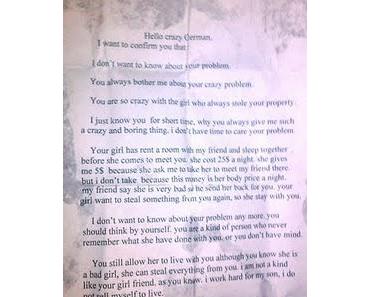 Hello crazy German,
I want to confirm you that
I don't want to know about your problem.
You always bother me about your crazy problem.
You are so crazy with the girl who always stole your property
I just know you for short time, why you always give me such
a crazy and boring thing. i don't have time to care your problem.
Your girl has rent a room with my friend and sleep together
before she comes to meet you. she cost 25$ a night. she gives
me 5$ because she ask me to take her to meet my friend there.
but i don't take because this money is her body price a night.
my friend say she is very bad so he send her back for you. your
girl want to steal something from you again, so she stay with you.
I don't want to know about your problem any more. you
should think by yourself. you are a kind of person who never
remember what she have done with you. or you don't have mind.
You still allow her to live with you although you know she is
a bad girl, she can steal everything from you. i am not a kind
like your girl friend. as you know. i work hard for my son, i do
not sell myself to live.